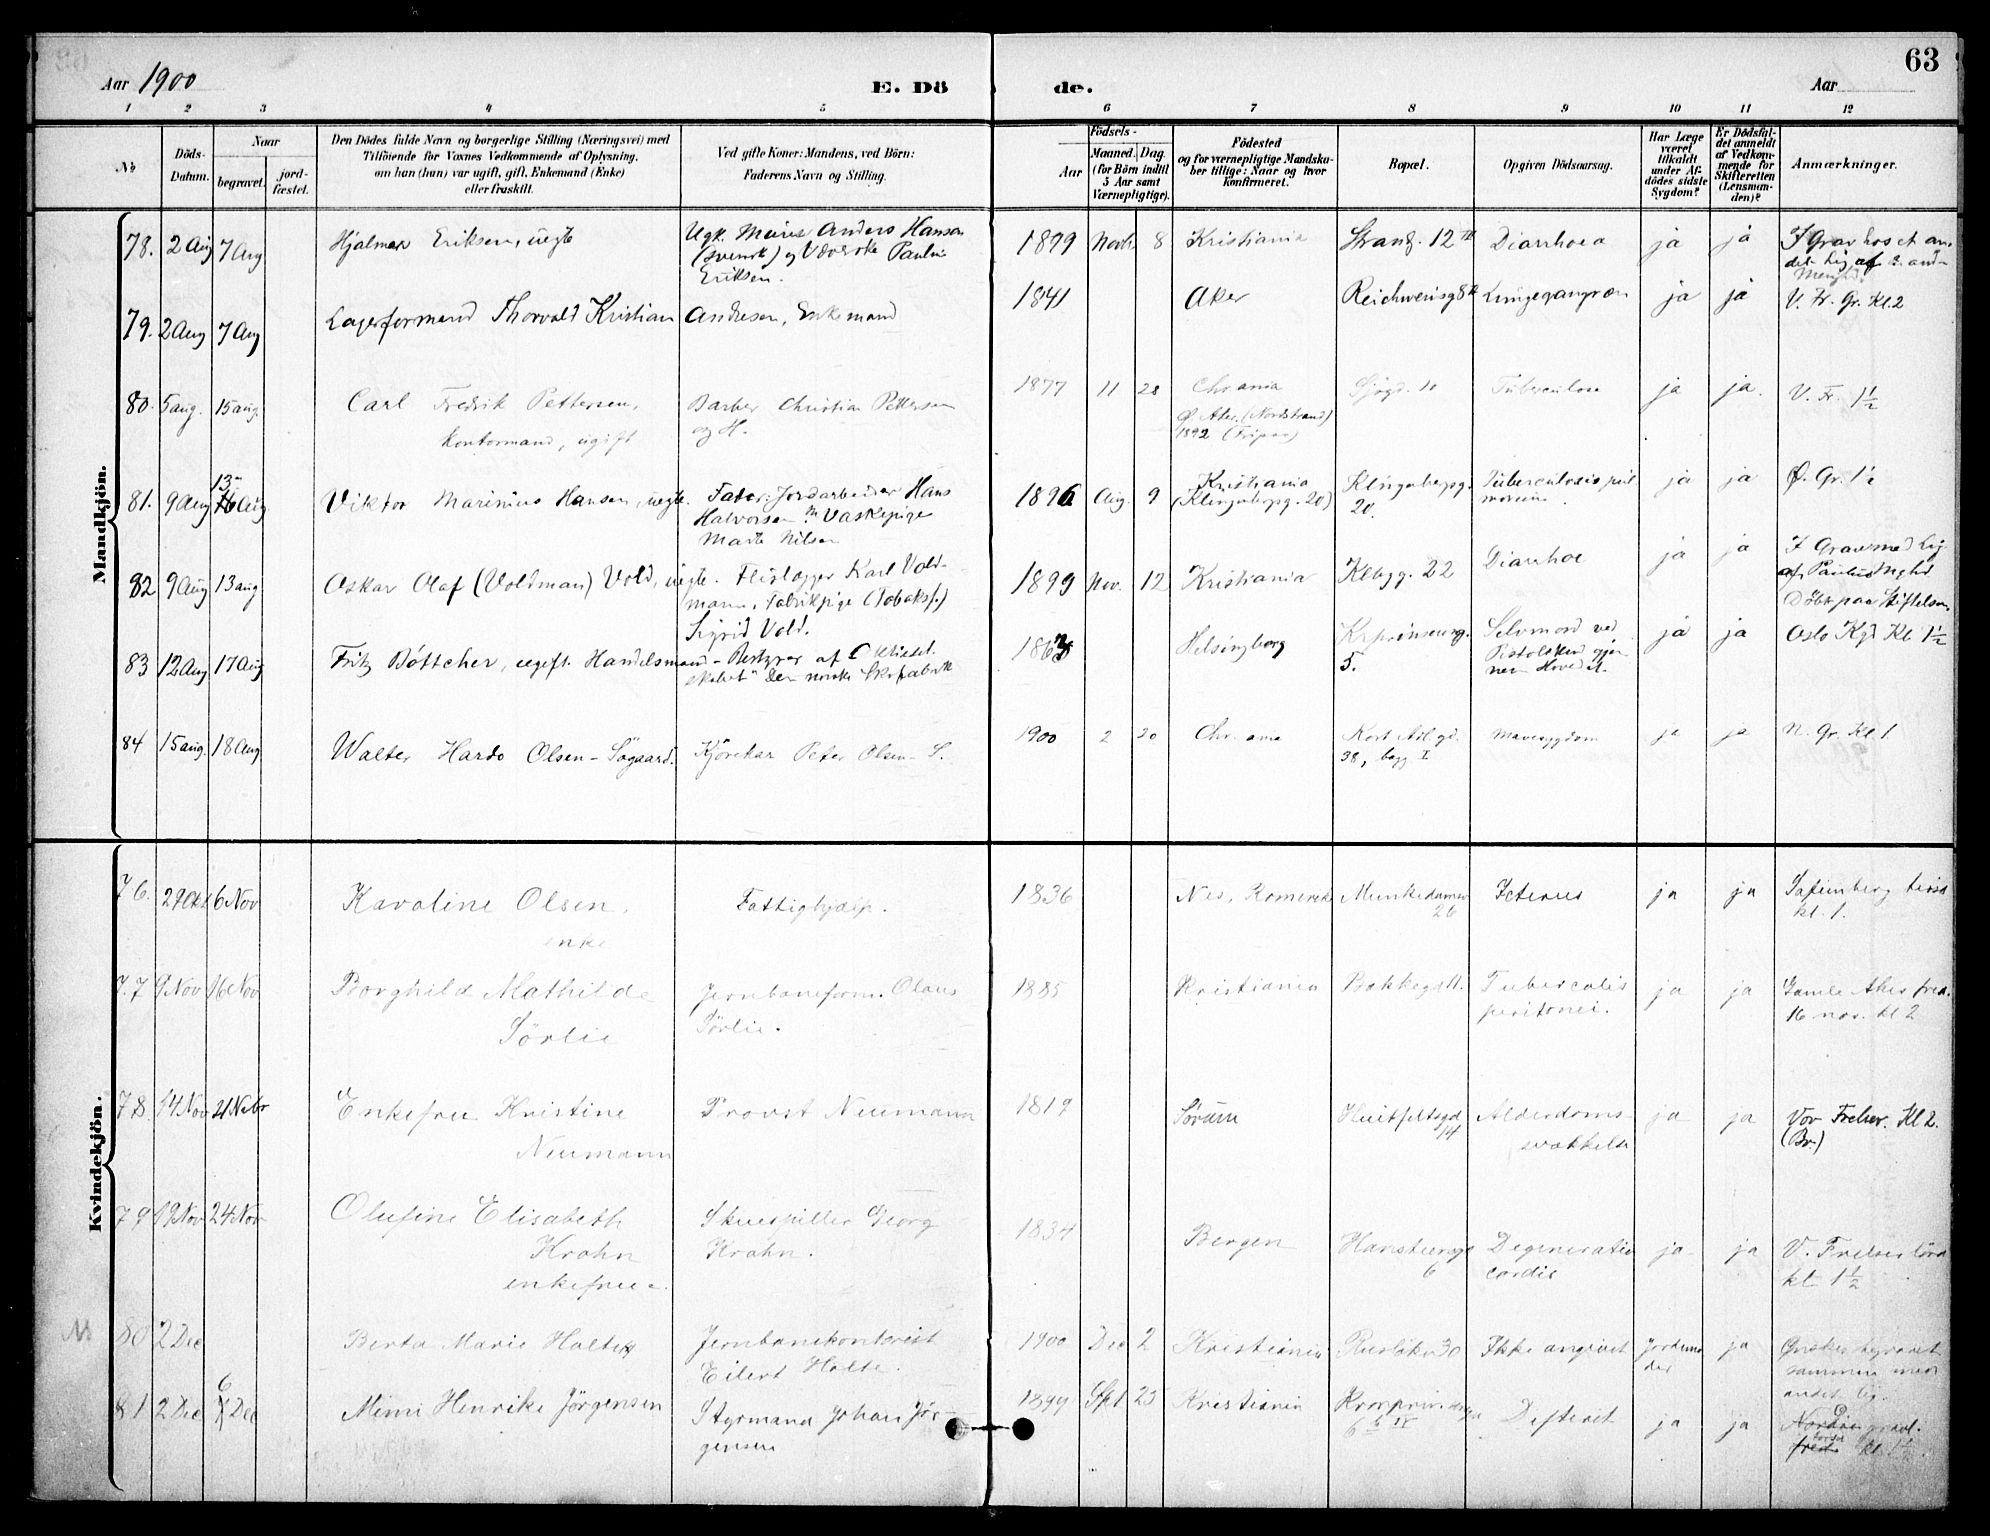 63
Aar 1900
E. Döde.
Aar
1 2 3 4 5 6 7 8 9 10 11 12
No
Döds-Datum.
Naar
begravet.
jord-fæstet.
Den Dödes fulde Navn og borgerlige Stilling (Næringsvei) med
Tilföiende for Voxnes Vedkommende af Oplysning,
om han (hun) var ugift, gift, Enkemand (Enke)
eller fraskilt.
Ved gifte Koner: Mandens, ved Börn:
Faderens Navn og Stilling.
Födsels-
Aar
Maaned. Dag.
(for Börn indtil
5 Aar samt
Værnepligtige).
Födested
og for værnepligtige Mandska-
ber tillige: Naar og hvor
konfirmeret.
Bopæl.
Opgiven Dödsaarsag.
Har Læge
været
tilkaldt
under Af-
dødes sidste
Sygdom?
Er Dödsfal-
det anmeldt
af Vedkom-
mende for
Skifteretten
(Lensman-
den)?
Anmærkninger.
Mandkjön.
78. 2 Aug 7 Aug Hjalmar Eriksen, uegte Ugk. Anders Hansen (svensk) og Væverske Pauline Eriksen. 1899 Novb 8 Kristiania Strandg. 12 Diarrhoea ja ja I Grav hos et andet Lig af
79. 2 Aug 7 Aug Lagerformand Thorvald Kristian Andresen, Enkemand 1841 Aker Lungegangræn ja ja V. Fr. Gr. Kl. 2
80. 5 aug. 15 aug. Carl Fredrik Pettersen, kontormand, ugift Barber Christian Pettersen og H. 1877 11 28 Chr.ania Ø. Aker. (Nordstrand) 1892 Sjøgd. 10 Tuberculose ja ja. V. Fr. 1½
81. 9 Aug 13 Aug Viktor Marinius Hansen, uegte. Fader: Jordarbeider Hans Halvorsen Vaskepige Marte Nilsen 1896 Aug. 9 Kristiania (Klingenbergg. 20) Klingenbergg. 20. Tuberculosis pulmonum ja ja Ø. Gr. 1½
82 9 Aug 13 aug Oskar Olaf (Voldman) Vold, uegte. Flislægger Karl Voldmann, Fabrikpige (Tobaksf.) Sigrid Vold. 1899 Nov. 12 Kristiania Klbgg. 22 Diarrhoe ja ja I Grav med Lig af Paulus Mghd Döbt paa Stiftelsen
83 12 Aug 17 Aug Fritz Böttcher, ugift. Handelsmand - Bestyrer af "Den norske Skofabrik 1863 Helsingborg Krprinsensg. 5. Selvmord ved Pistolskud gjennem Hovedet. ja ja Oslo Kgd Kl 1½
84 15 aug. 18 Aug Walter Hardo Olsen-Sögaard. Kjörekar Peter Olsen-S. 1900 2 20 Chr.ania 38, bagg I Mavesygdom ja ja N. Gr. Kl. 1
Kvindekjön.
76. 29 Okt 6 Nov Karoline Olsen, enke Fattighjælp. 1836 Nes, Romerike Munkedamsv 26 Icterus ja ja kl. 1.
77 9 Nov 16 Nov Borghild Mathilde Sörlie Jernbaneform. Olaus Sörlie. 1885 Kristiania Bakkegd 11. Tuberculis peritonei. ja ja Gamle Aker fred. 16 nov. kl 2
78 14 Nov 21 Novbr Enkefru Kristine Neumann Provst Neumann 1819 Sörum Huitfeldtsgd 14 Alderdomssvakkelse ja ja Vor Frelser. Kl 2. (Br.)
79 19 Nov 24 Nov Olufine Elisabeth Krohn enkefrue. Skuespiller Georg Krohn. 1834 Bergen Hansteensg 6 Degeneratio cordis ja ja V. Frelser lörd kl. 1½
80 2 Dec Berta Marie Holter Jernbanekontorist Eilert Holte. 1900 Dec 2 Kristiania Ruslökv 30 Ikke angivet Jordmoder ja Önskes begravet sammen med andet lig.
81 2 Dec 6 Dec Mimi Henrike Jörgensen Styrmand Johan Jörgensen 1899 Spt 25 Kristiania Kronprinsensgd 6 Difterit ja ja